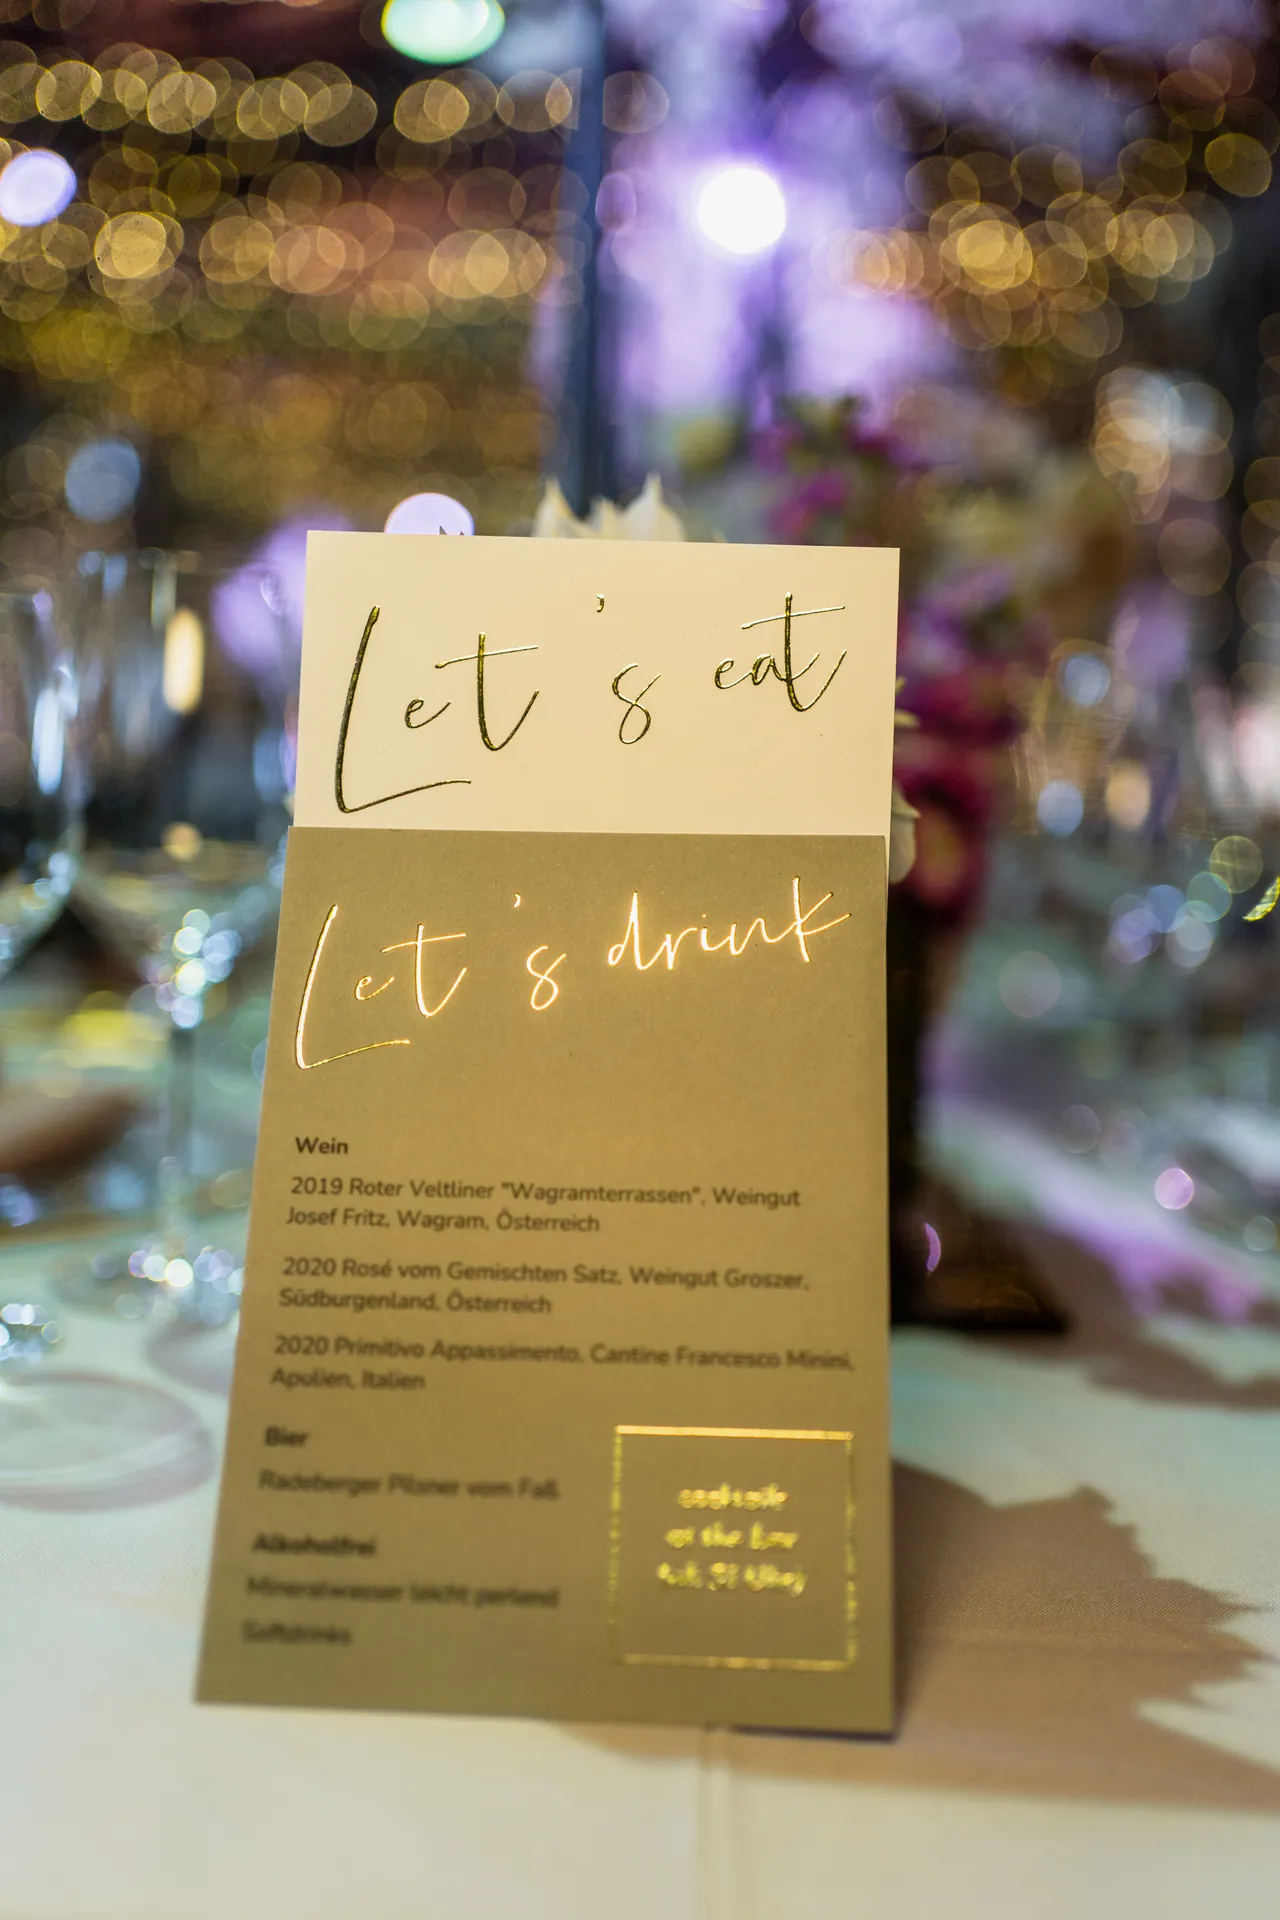 Let's eat
Let's drink
Wein
2019 Roter Veltliner "Wagramterrassen", Weingut
Josef Fritz, Wagram, Österreich
2020 Rosé vom Gemischten Satz, Weingut Groszer,
Südburgenland, Österreich
2020 Primitivo Appassimento, Cantine Francesco Minini,
Apulien, Italien
Bier
Radeberger Pilsner vom Faß
Alkoholfrei
Mineralwasser leicht perlend
Softdrinks
cocktails
at the bar